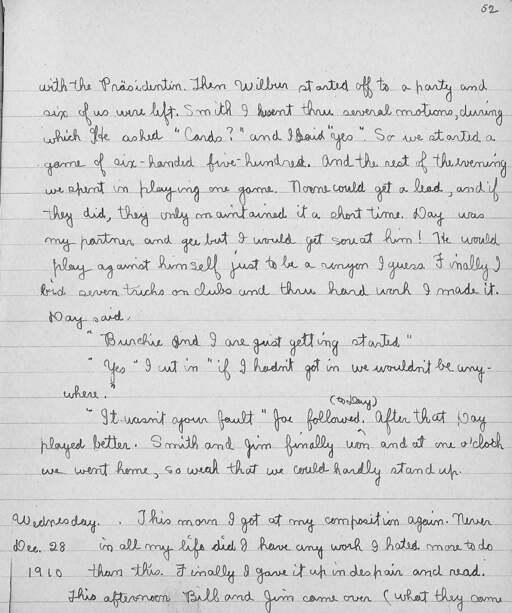 52
with the Präsidentin. Then Wilbur started off to a party and
six of us were left. Smith & I went thru several motions, during
which He asked "Cards?" and I said "yes". So we started a
game of six-handed five-hundred. And the rest of the evening
we spent in playing one game. No one could get a lead, and if
they did, they only maintained it a short time. Day was
my partner and gee but I would get sour at him! He would
play against himself just to be a I guess Finally I
bid seven tricks on clubs and thru hard work I made it.
Day said.
"Burchie and I are just getting started"
"Yes" I cut in "if I hadn't got in we wouldn't be any-
where."
"It wasn't your fault" Joe followed. (to Day) After that Day
played better. Smith and Jim finally won and at one o'clock
we went home, so weak that we could hardly stand up.
Wednesday. . This morn I got at my composition again. Never
Dec. 28 in all my life did I have any work I hated more to do
1910 than this. Finally I gave it up in despair and read.
This afternoon Bill and Jim came over (what they came